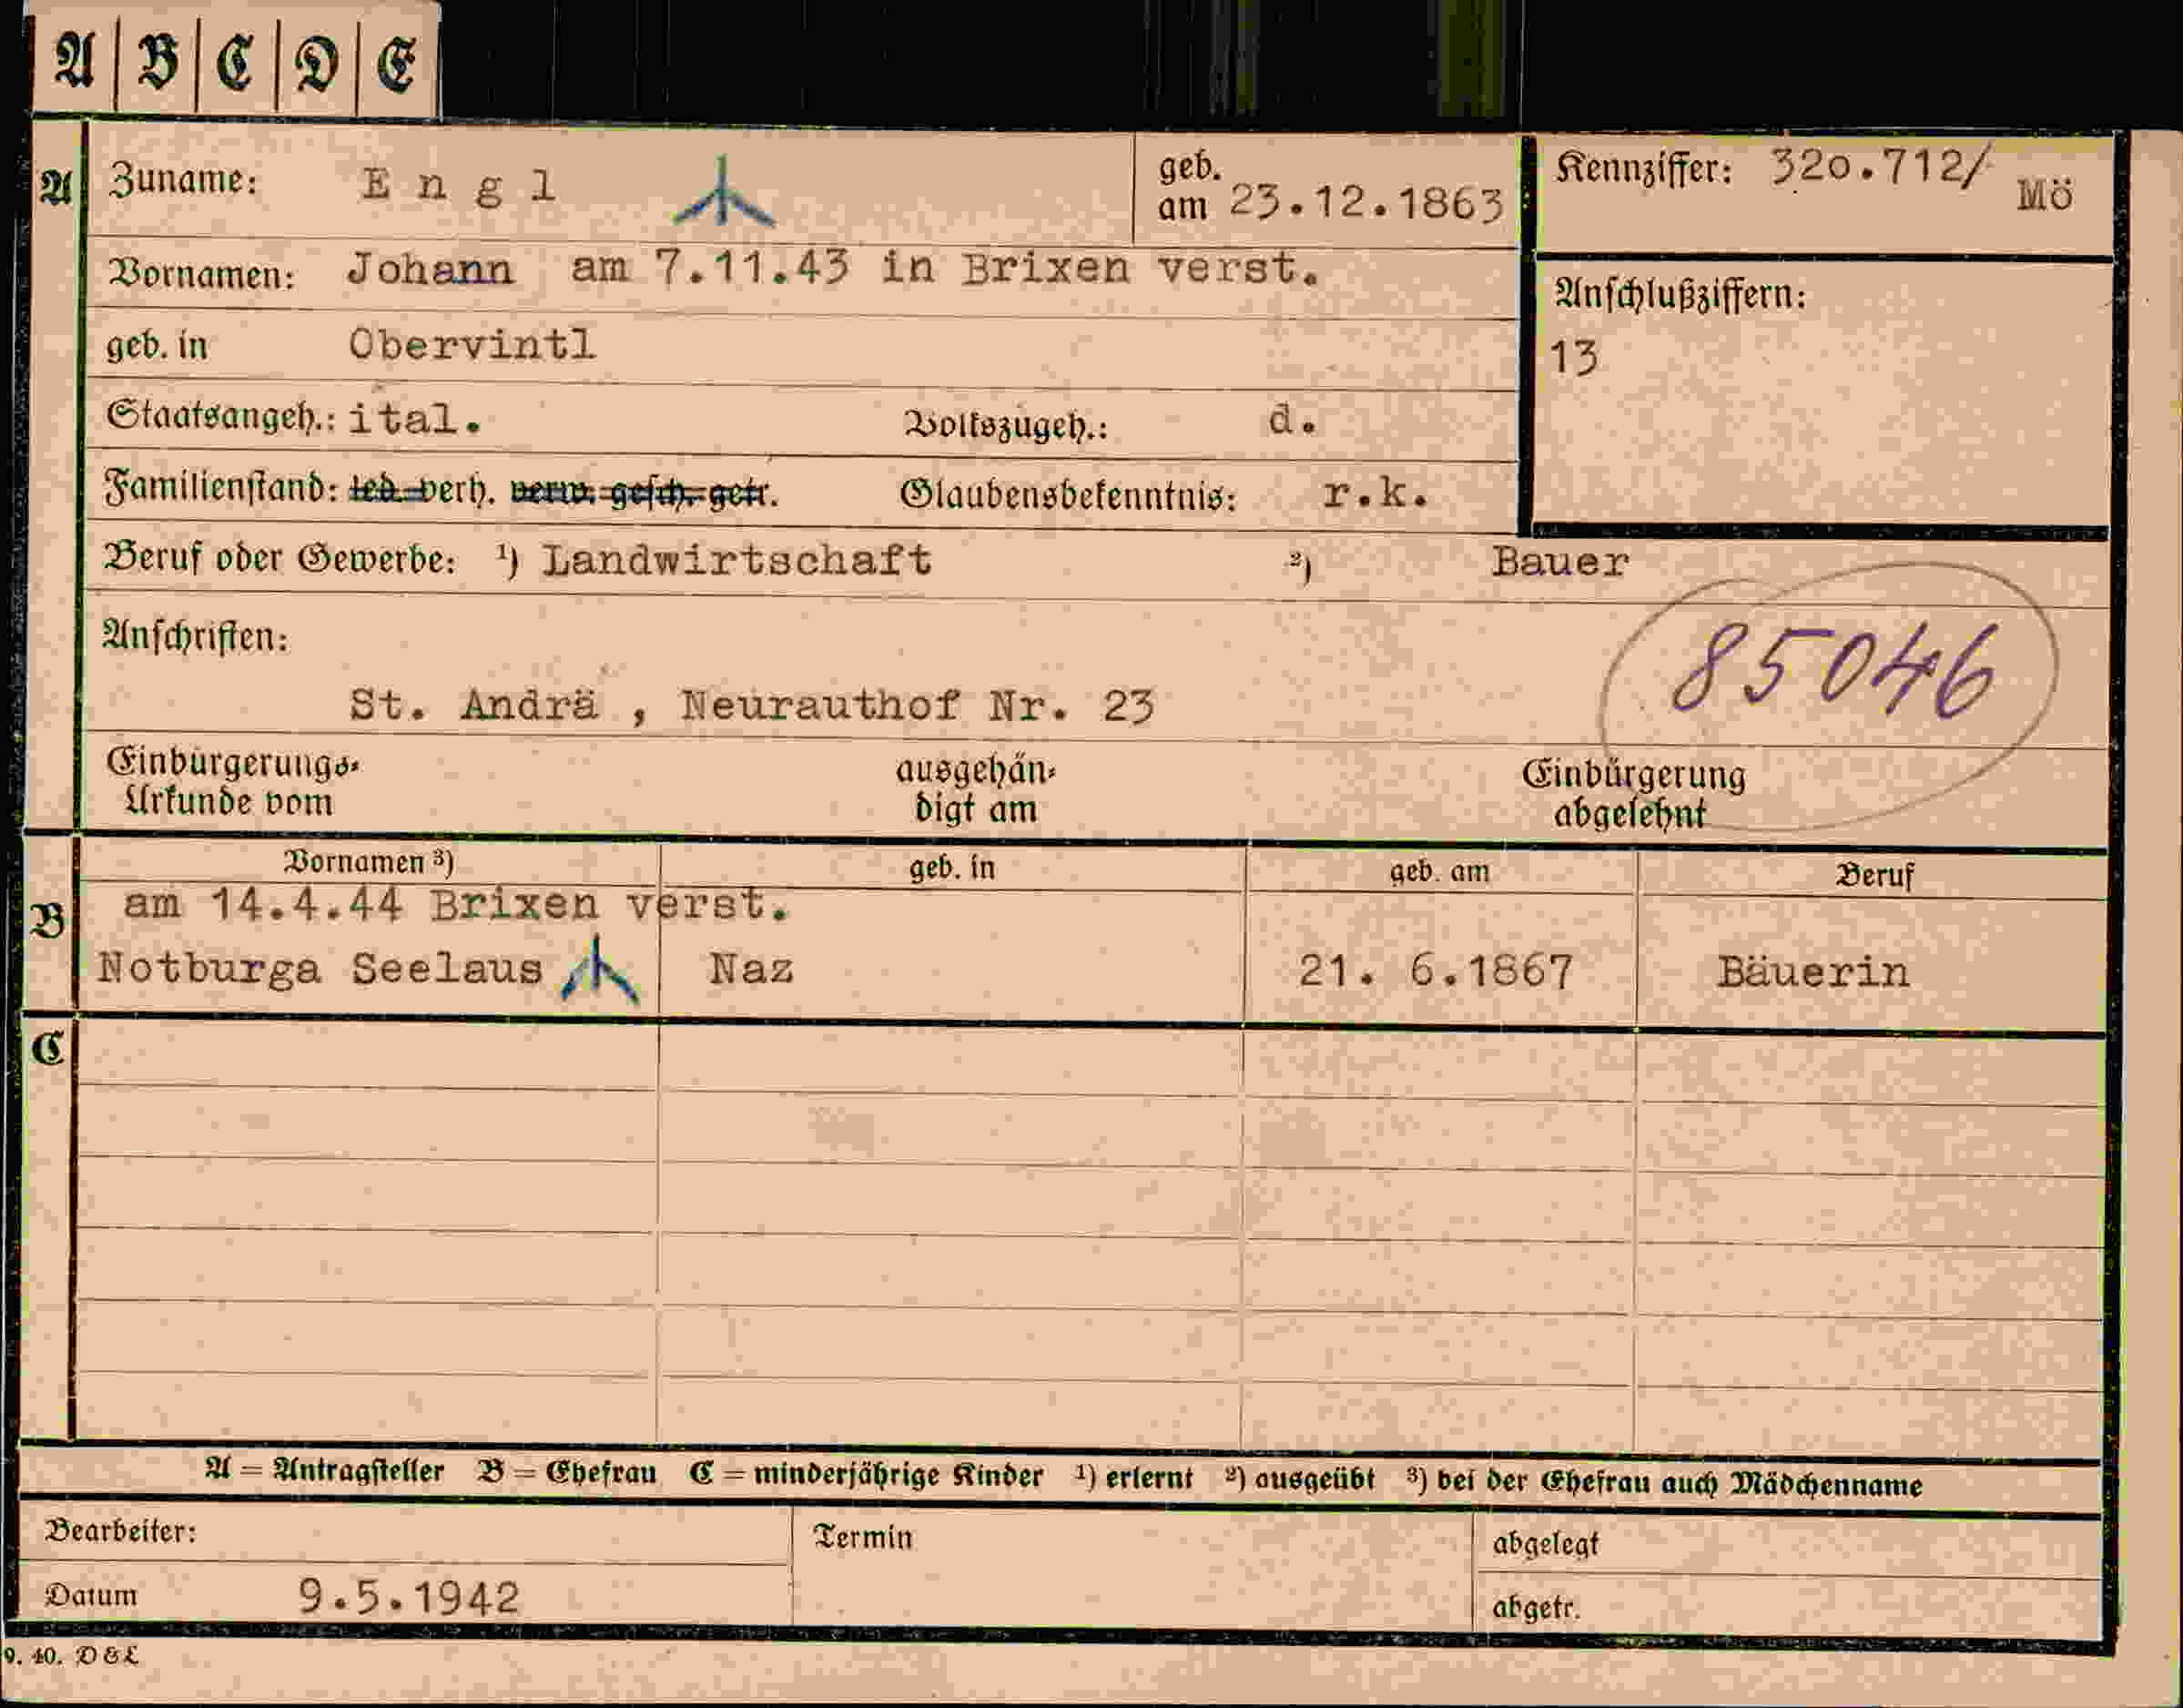 A B C D E
A Zuname: Engl geb. am 23.12.1863 Kennziffer: 320.712/ Mö
Vornamen: Johann am 7.11.43 in Brixen verst.
Anschlußziffern:
geb. in Obervintl
13
Staatsangeh.: ital. Volkszugeh.: d.
Familienstand: led. verh. verw. gesch. getr. Glaubensbekenntnis: r.k.
Beruf oder Gewerbe: ¹) Landwirtschaft ²) Bauer
Anschriften:
85046
St. Andrä , Neurauthof Nr. 23
Einbürgerungs- ausgehän- Einbürgerung
Urkunde vom digt am abgelehnt
Vornamen ³) geb. in geb. am Beruf
B am 14.4.44 Brixen verst.
Notburga Seelaus Naz 21. 6.1867 Bäuerin
C
A = Antragsteller B = Ehefrau C = minderjährige Kinder ¹) erlernt ²) ausgeübt ³) bei der Ehefrau auch Mädchenname
Bearbeiter: Termin abgelegt
Datum 9.5.1942 abgetr.
9. 40. D & L